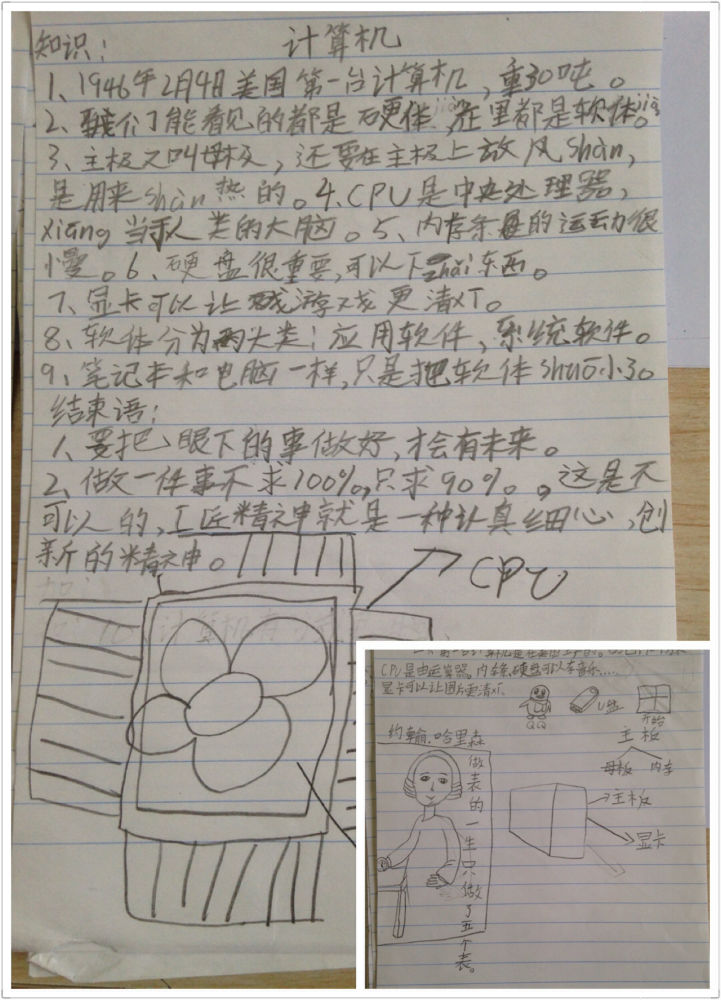 知识：
计算机
1、1946年2月4日美国第一台计算机，重30吨。
2、我们能看见的都是硬件jiàn，在里都是软体jiàn。
3、主极又叫母极，还要在主极上放风shàn，
是用来shàn热的。4、CPU是中央处理器，
xiàng当于人类的大脑。5、内存条的运动很
慢。6、硬盘很重要，可以下zhǎi东西。
7、显卡可以让游戏更清XT。
8、软体分为两大类：应用软件，系统软件。
9、笔记本和电脑一样，只是把软体shuō小了。
结束语：
1、要把眼下的事做好，才会有未来。
2、做一件事不求100%，只求90%。这是不
可以的，工匠精神就是一种认真细心，创
新的精神。
CPU
CPU是由运算器。内存条，硬盘可以存音乐……
显卡可以让图片更清XT。
QQ
U盘
开始
约翰.哈里森
做表的一生只做了五个表。
主板
母板 内存
主板
显卡